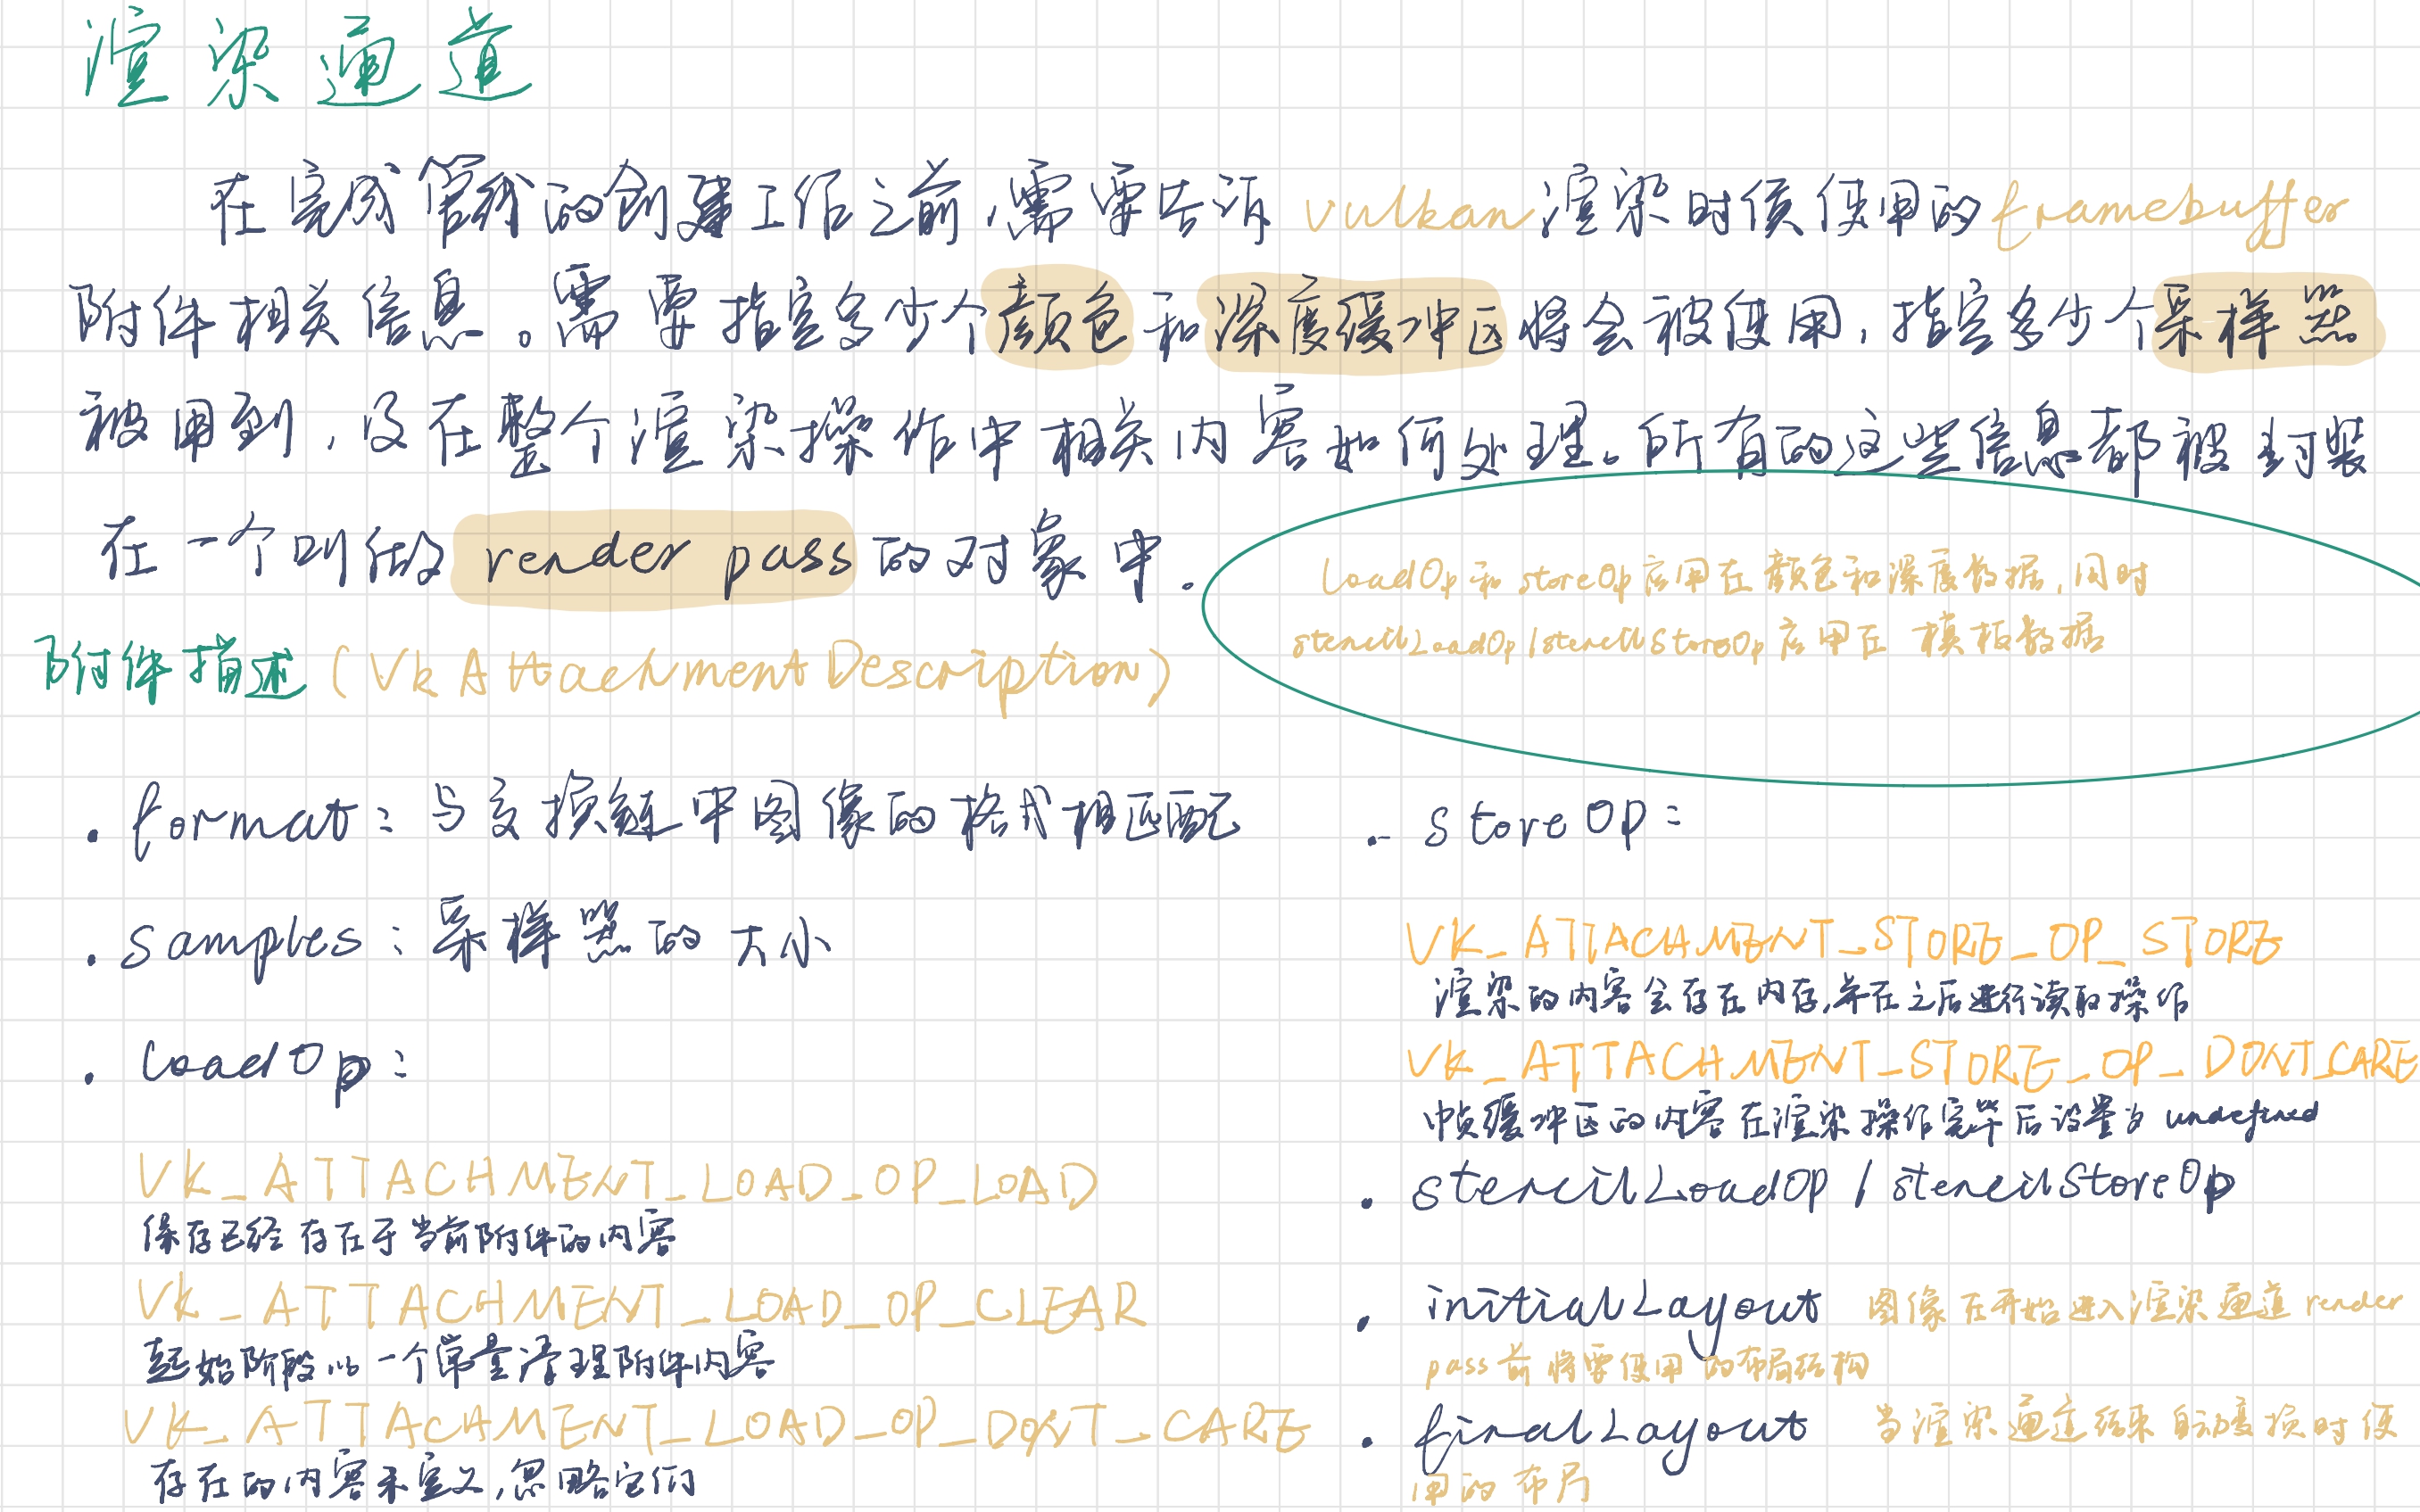 渲染通道
在完成管线的创建工作之前,需要告诉 vulkan 渲染时候使用的 framebuffer
附件相关信息。需要指定多少个颜色和深度缓冲区将会被使用,指定多少个采样器
被用到,及在整个渲染操作中相关内容如何处理。所有的这些信息都被封装
在一个叫做 render pass 的对象中.
loadOp 和 storeOp 应用在颜色和深度数据,同时
stencilLoadOp / stencilStoreOp 应用在 模板数据
附件描述 (VkAttachmentDescription)
· format: 与交换链中图像的格式相匹配
· samples: 采样器的大小
· loadOp:
VK_ATTACHMENT_LOAD_OP_LOAD
保存已经存在于当前附件的内容
VK_ATTACHMENT_LOAD_OP_CLEAR
起始阶段以一个常量清理附件内容
VK_ATTACHMENT_LOAD_OP_DONT_CARE
存在的内容未定义,忽略它们
· storeOp:
VK_ATTACHMENT_STORE_OP_STORE
渲染的内容会存在内存,并在之后进行读取操作
VK_ATTACHMENT_STORE_OP_DONT_CARE
帧缓冲区的内容在渲染操作完毕后设置为 undefined
· stencilLoadOp / stencilStoreOp
· initialLayout 图像在开始进入渲染通道 render
pass 前将要使用的布局结构
· finalLayout 当渲染通道结束自动变换时使
用的布局